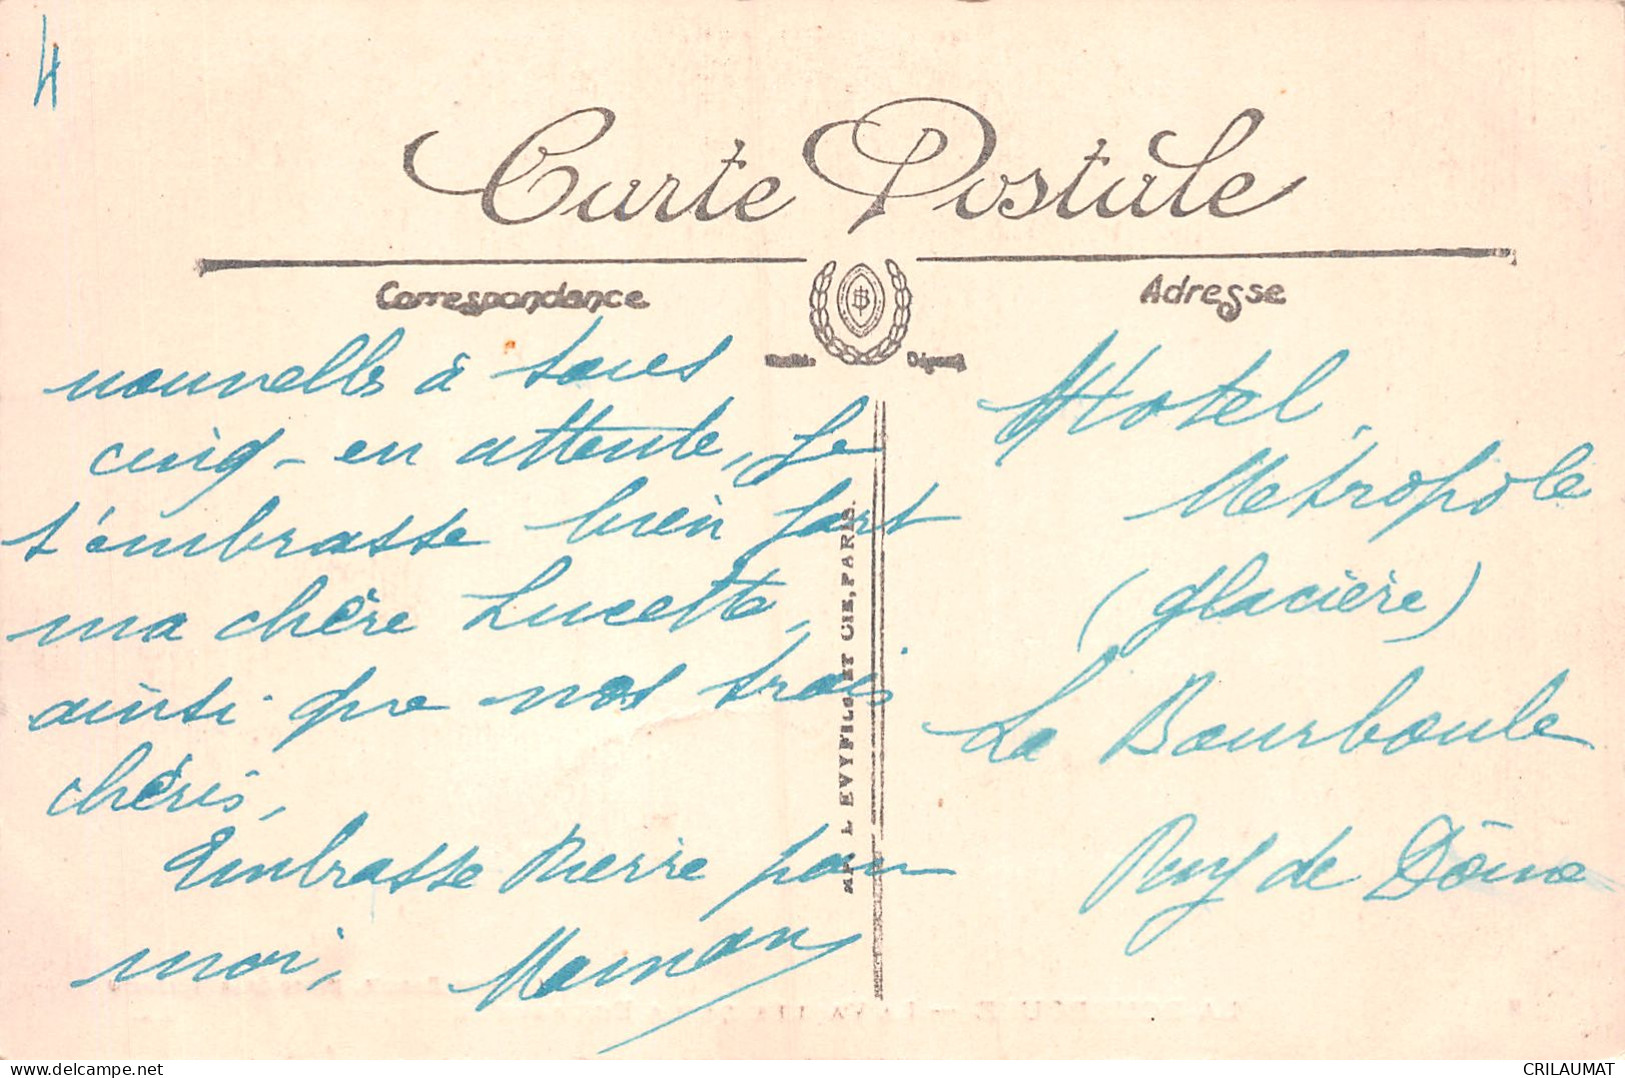 4
Carte Postale
Correspondance
Adresse
nouvelles à tous
cinq - en attente, je
t'embrasse bien fort
ma chère Lucette,
ainsi que nos trois
chéris,
Embrasse Pierre pour
moi,
Maman
Hotel
Metropole
(glacière)
La Bourboule
Puy de Dôme
LEVY FILS ET CIE, PARIS.
CRILAUMAT